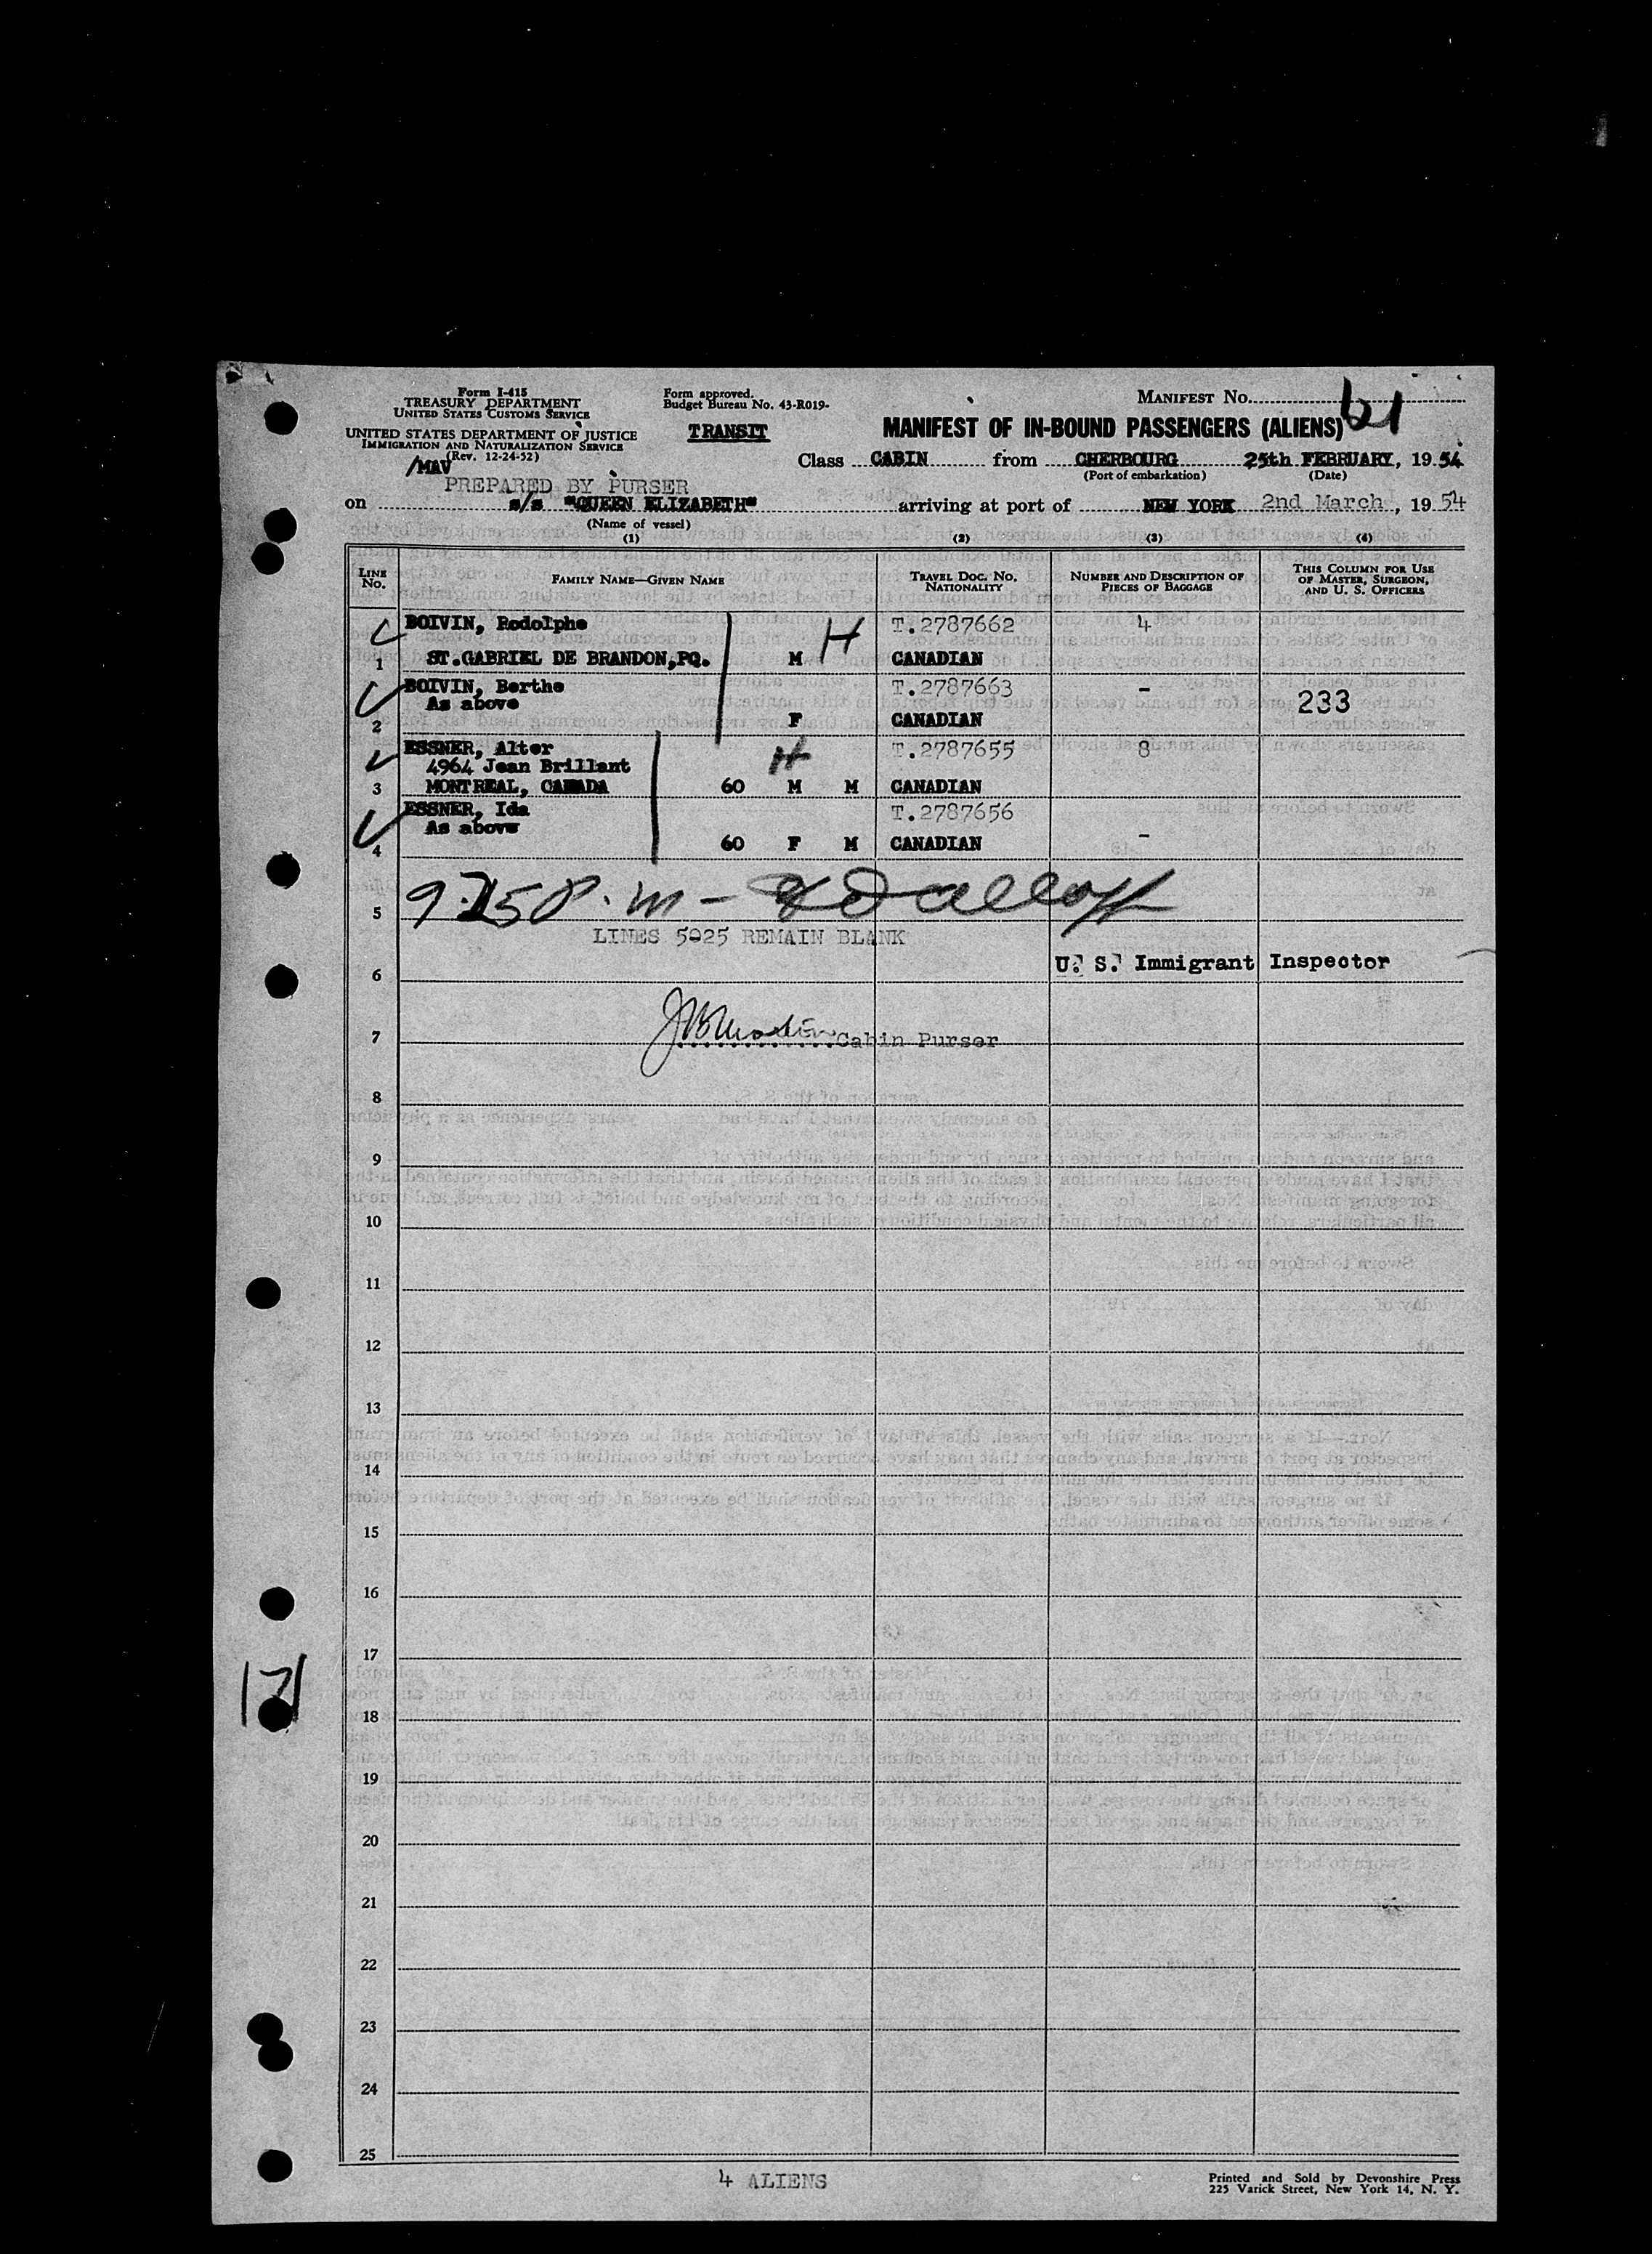 Form I-415
TREASURY DEPARTMENT
UNITED STATES CUSTOMS SERVICE
UNITED STATES DEPARTMENT OF JUSTICE
IMMIGRATION AND NATURALIZATION SERVICE
(Rev. 12-24-52)
/MAV
Form approved.
Budget Bureau No. 43-R019-
TRANSIT
MANIFEST No. 61
MANIFEST OF IN-BOUND PASSENGERS (ALIENS)
Class CABIN from CHERBOURG 25th FEBRUARY, 1954
(Port of embarkation) (Date)
PREPARED BY PURSER
on s/s "QUEEN ELIZABETH" arriving at port of NEW YORK 2nd March, 1954
(Name of vessel)
(1) (2) (3) (4)
LINE No. FAMILY NAME—GIVEN NAME TRAVEL DOC. NO. NATIONALITY NUMBER AND DESCRIPTION OF PIECES OF BAGGAGE THIS COLUMN FOR USE OF MASTER, SURGEON, AND U. S. OFFICERS
BOIVIN, Rodolphe H T.2787662 4
1 ST.GABRIEL DE BRANDON,PQ. M CANADIAN
BOIVIN, Berthe T.2787663 - 233
As above
2 F CANADIAN
ESSNER, Alter H T.2787655 8
4964 Jean Brillant
3 MONTREAL, CANADA 60 M M CANADIAN
ESSNER, Ida T.2787656
As above
4 60 F M CANADIAN -
9.15 P.m -
5
LINES 5025 REMAIN BLANK
U. S. Immigrant Inspector
6
7 Cabin Purser
8
9
10
11
12
13
14
15
16
17
171
18
19
20
21
22
23
24
25
4 ALIENS
Printed and Sold by Devonshire Press
225 Varick Street, New York 14, N. Y.